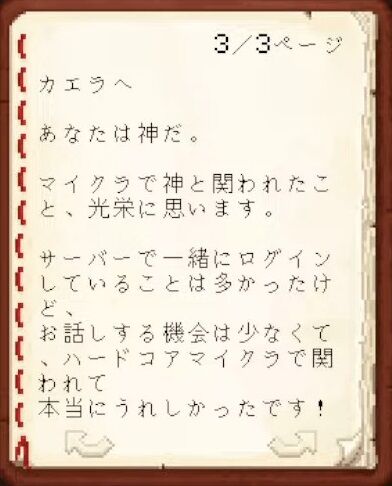 3/3ページ
カエラへ
あなたは神だ。
マイクラで神と関われたこ
と、光栄に思います。
サーバーで一緒にログイン
していることは多かったけ
ど、
お話しする機会は少なくて
、ハードコアマイクラで関
われて
本当にうれしかったです!